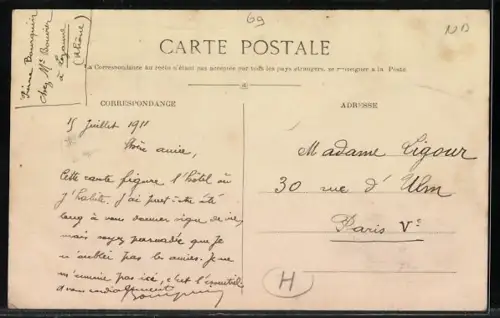 69
CARTE POSTALE
La Correspondance au recto n'étant pas acceptée par tous les pays étrangers, se renseigner à la Poste
chez Mr Bouvier
à
(Rhône)
CORRESPONDANCE
ADRESSE
15 Juillet 1911
Chère amie,
Cette carte figure l'hôtel où
j'habite. J'ai peut-être été
long à vous donner signe de vie,
mais soyez persuadée que je
n'oublie pas les amies. Je ne
m'ennuie pas ici, c'est l'essentiel
à vous cordialement
Madame Ligour
30 rue d'Ulm
Paris Ve
H